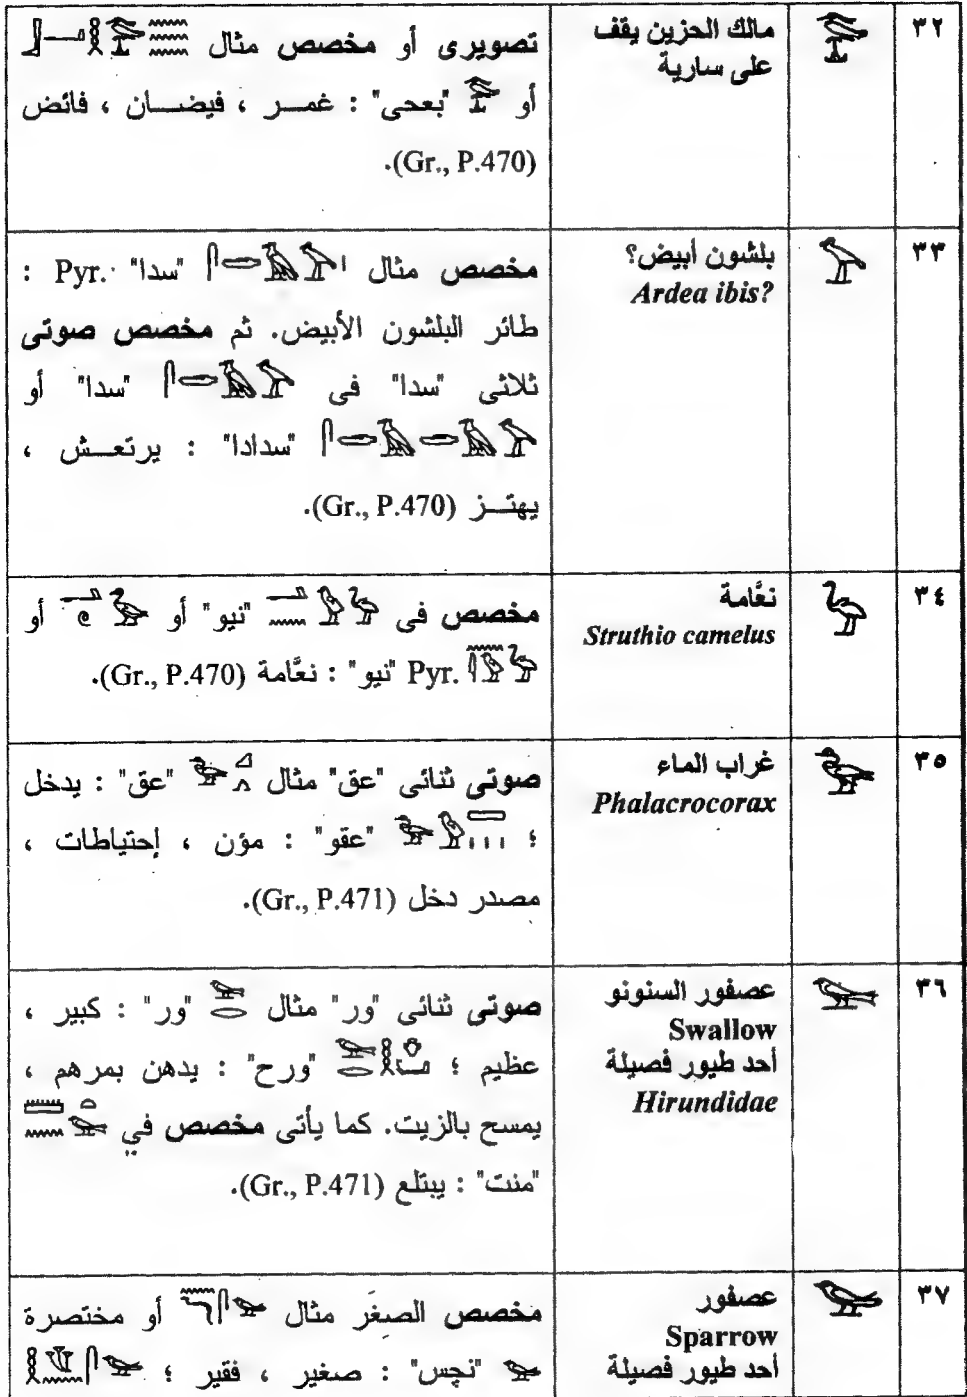 ٣٢
مالك الحزين يقف
على سارية
تصويرى أو مخصص مثال
أو "بعحى" : غمـــر ، فيضـــان ، فائض
(Gr., P.470).
٣٣
بلشون أبيض؟
Ardea ibis?
مخصص مثال "سدا" Pyr. :
طائر البلشون الأبيض. ثم مخصص صوتى
ثلاثى "سدا" فى "سدا" أو
"سدادا" : يرتعــش ،
يهتــز (Gr., P.470).
٣٤
نعَّامة
Struthio camelus
مخصص فى "نيو" أو أو
Pyr. "نيو" : نعَّامة (Gr., P.470).
٣٥
غراب الماء
Phalacrocorax
صوتي ثنائى "عق" مثال "عق" : يدخل
؛ "عقو" : مؤن ، إحتياطات ،
مصدر دخل (Gr., P.471).
٣٦
عصفور السنونو
Swallow
أحد طيور فصيلة
Hirundidae
صوتي ثنائى "ور" مثال "ور" : كبير ،
عظيم ؛ "ورح" : يدهن بمرهم ،
يمسح بالزيت. كما يأتى مخصص في
"منت" : يبتلع (Gr., P.471).
٣٧
عصفور
Sparrow
أحد طيور فصيلة
مخصص الصغَر مثال أو مختصرة
"نچس" : صغير ، فقير ؛